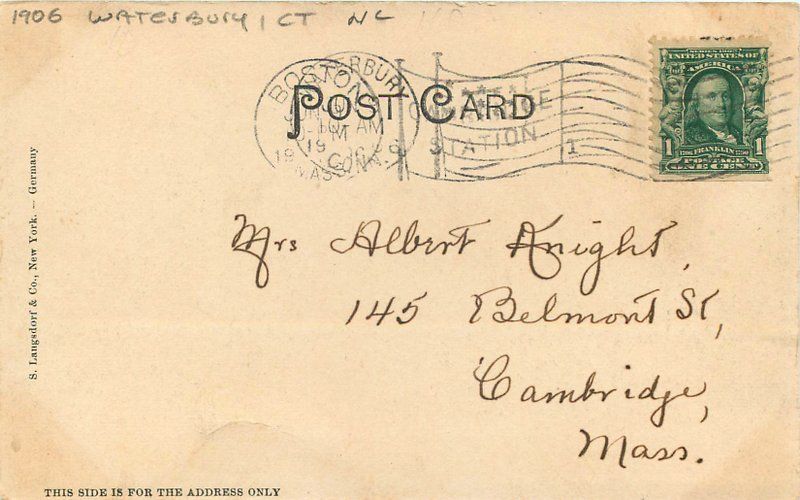 1906 WATERBURY, CT NC
POST CARD
BOSTON
MASS.
ERBURY
CONN.
AM
19
STATION
1
SERIES 1902
UNITED STATES OF
AMERICA
1 FRANKLIN 1
POSTAGE
ONE CENT
Mrs Albert Knight,
145 Belmont St,
Cambridge,
Mass.
S. Langsdorf & Co., New York. — Germany
THIS SIDE IS FOR THE ADDRESS ONLY